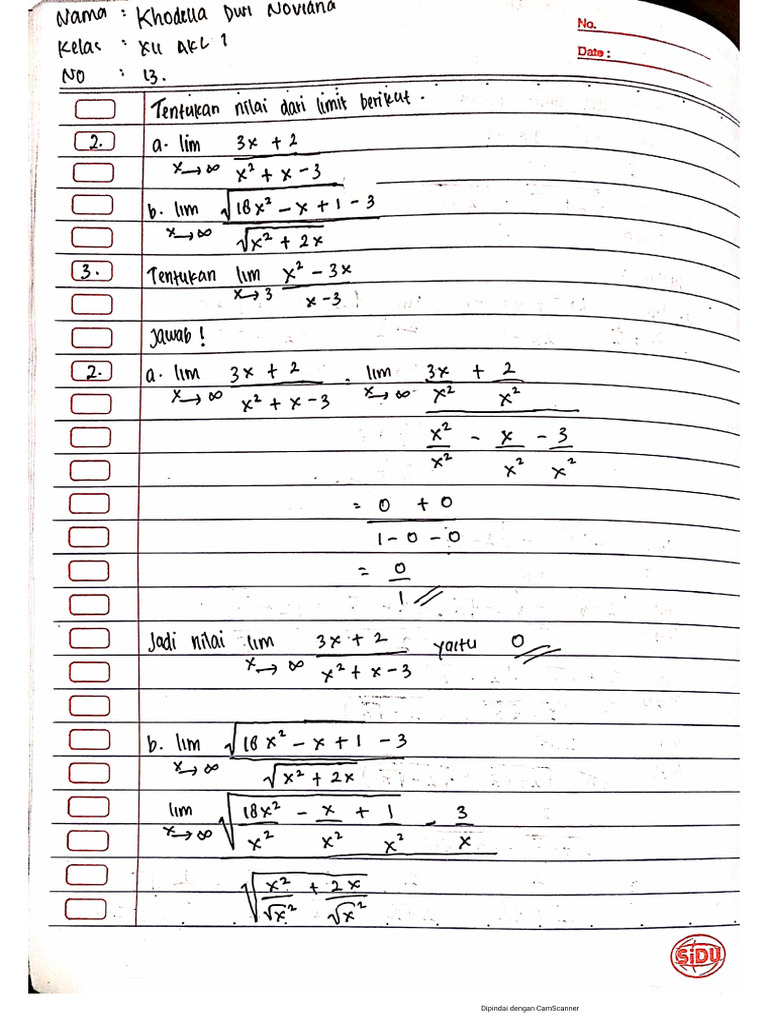 Nama : Khodella Dwi Noviana
Kelas : XII AKL 1
No : 13.
No.
Date :
Tentukan nilai dari limit berikut.
2. a. lim x→∞ (3x + 2)/(x² + x - 3)
b. lim x→∞ (√(18x² - x + 1) - 3)/√(x² + 2x)
3. Tentukan lim x→3 (x² - 3x)/(x - 3) !
Jawab !
2. a. lim x→∞ (3x + 2)/(x² + x - 3) = lim x→∞ (3x/x² + 2/x²)/(x²/x² - x/x² - 3/x²)
= (0 + 0)/(1 - 0 - 0)
= 0/1 //
Jadi nilai lim x→∞ (3x + 2)/(x² + x - 3) yaitu 0 //
b. lim x→∞ (√(18x² - x + 1) - 3)/√(x² + 2x)
lim x→∞ (√(18x²/x² - x/x² + 1/x²) - 3/x)/√(x²/√x² + 2x/√x²)
SiDU
Dipindai dengan CamScanner